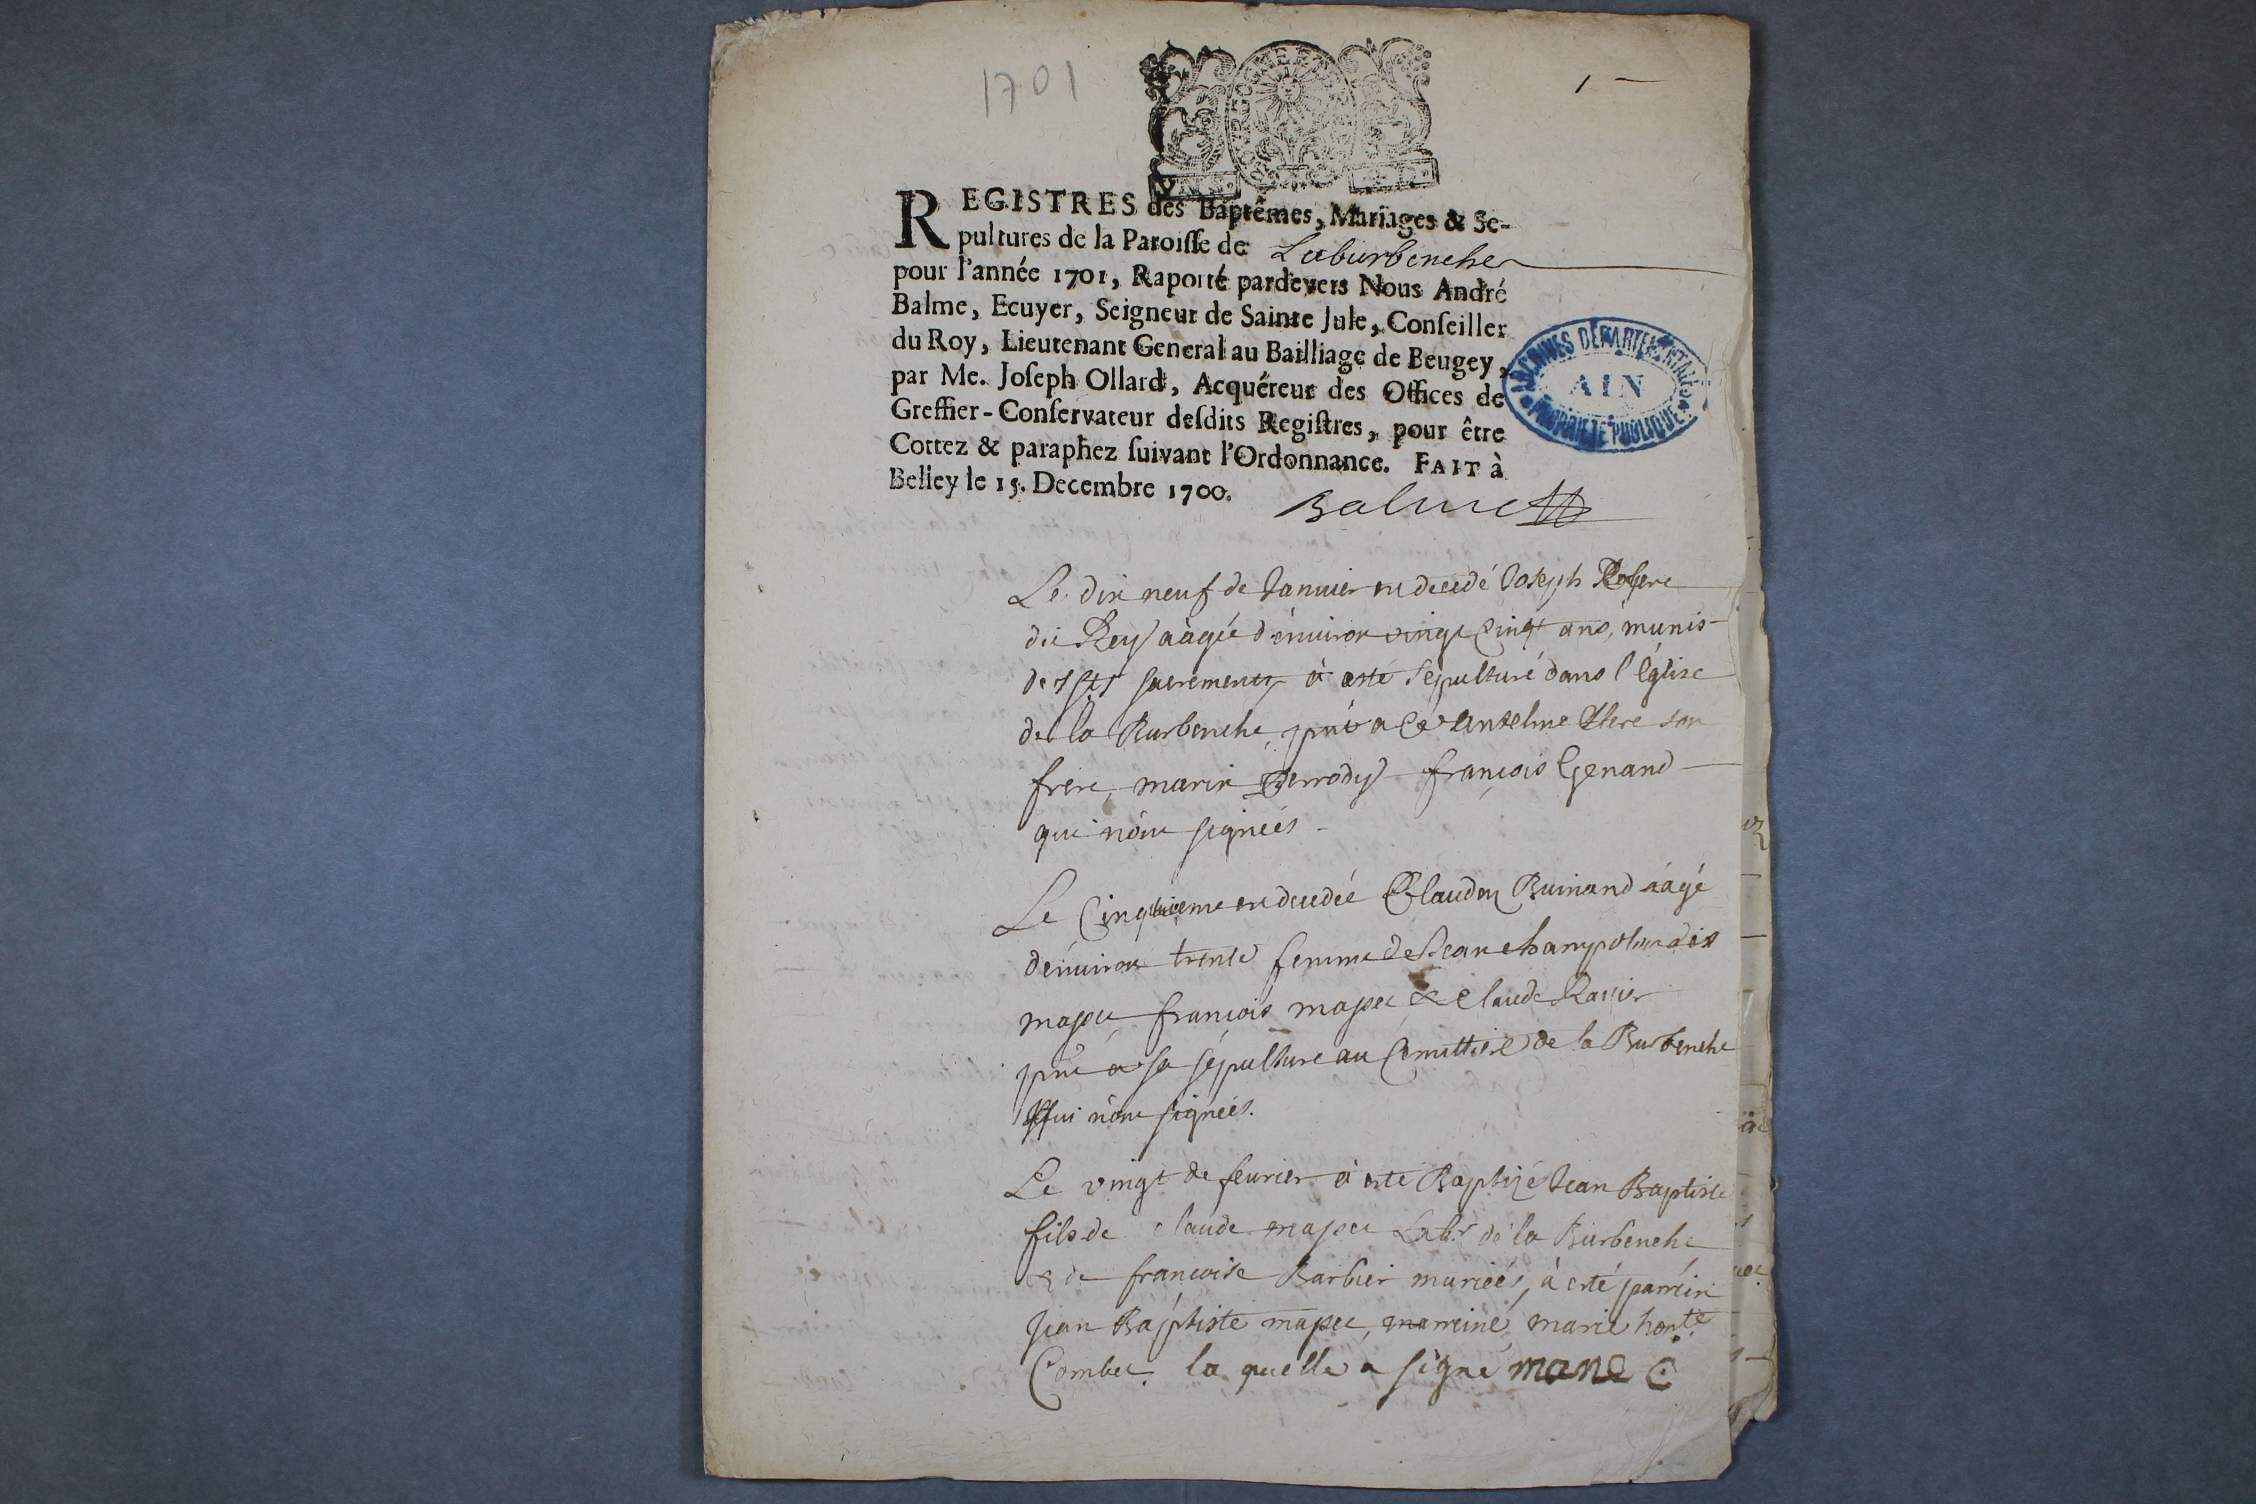 1701
1
REGISTRES des Baptêmes, Mariages & Se-
pultures de la Paroisse de Laburbenche
pour l'année 1701, Raporté pardevers Nous André
Balme, Ecuyer, Seigneur de Sainte Jule, Conseiller
du Roy, Lieutenant General au Bailliage de Beugey,
par Me. Joseph Ollard, Acquéreur des Offices de
Greffier-Conservateur desdits Registres, pour être
Cottez & paraphez suivant l'Ordonnance. FAIT à
Belley le 15. Decembre 1700.
Balme
ARCHIVES DÉPARTEMENTALES
AIN
PROPRIÉTÉ PUBLIQUE
Le dix neuf de Janvier est decedé Joseph
dit Rey aàgée d'environ vingt Cinqt ans, munis
des sts sacrements à esté sépulturé dans l'église
de la Burbenche, pnt a Ce Anthelme son
frere, marin Perrody françois Genand
qui n'ont signées
Le Cinquieme est decedée Claudon Buinand aàgé
d'environ trente femme de Jean champolim dis
massu françois massu & Claude Ravier
pnt a sa sépulture au Cemittiere de la Burbenche
qui n'ont signées.
Le vingt de feurier à esté Baptizé Jean Baptiste
fils de claude massu Labr de la Burbenche
& de francoise Barbier mariées, à esté parrein
Jean Baptiste massu, marreine marie honte
Combet. la quelle a signé marie C